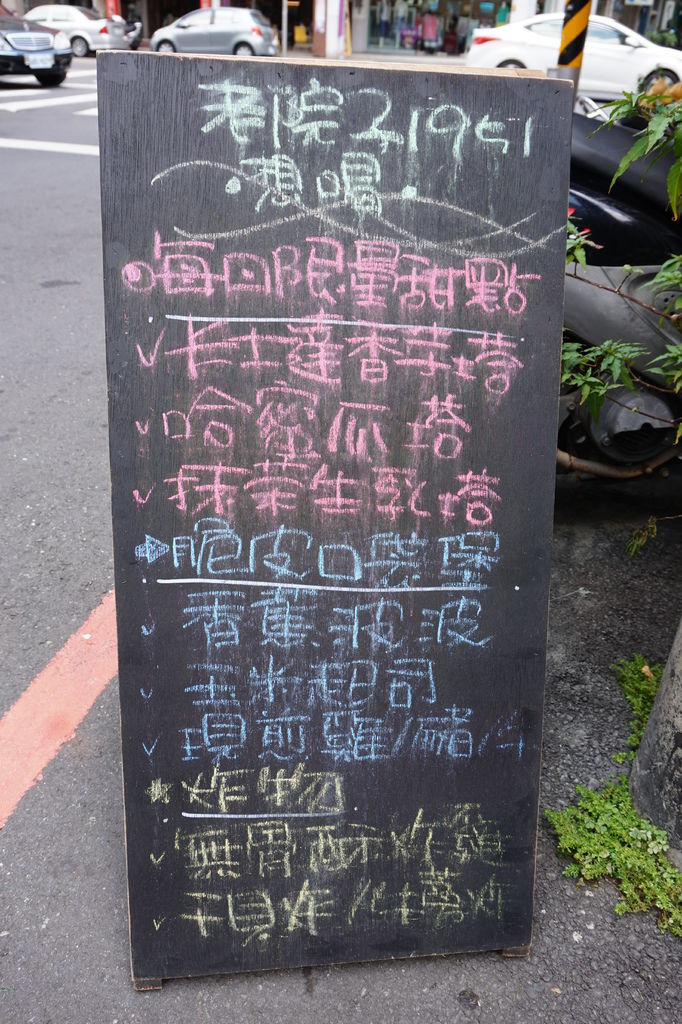 老院子1951
·想喝·
每日限量甜點
卡士達香芋塔
哈蜜瓜塔
抹茶生乳塔
脆皮口袋堡
香蕉波波
玉米起司
現煎雞/豬/牛
炸物
無骨酥炸雞
現炸/